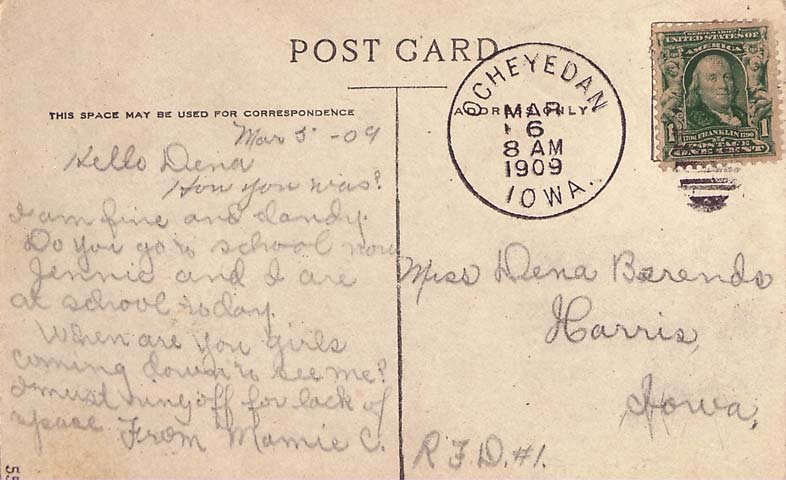 POST CARD
THIS SPACE MAY BE USED FOR CORRESPONDENCE
Mar 5 - 09
Hello Dena
How you was?
I am fine and dandy.
Do you go to school now
Jennie and I are
at school today.
When are you girls
coming down to see me?
I must ring off for lack of
space From Mamie C.
ADDRESS ONLY
OCHEYEDAN
MAR
6
8 AM
1909
IOWA.
SERIES 1902
UNITED STATES OF
AMERICA
1706 FRANKLIN 1790
1 POSTAGE 1
ONE CENT
Miss Dena Berends
Harris,
Iowa,
R.F.D. #1.